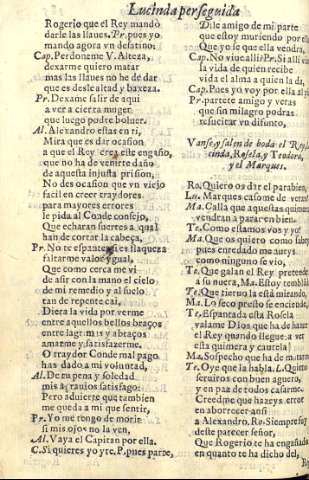 Lucinda perseguida
Rogerio que el Rey mandò
darle las llaues. Pr. pues yo
mando agora vn desatino.
Cap. Perdonente V. Alteza,
dexarme quiero matar
mas las llaues no he de dar
que es deslealtad y baxeza.
Pr. Dexame salir de aqui
a ver a cierta muger
que luego podre boluer.
Al. Alexandro estas en ti,
Mira que es dar ocasion
a que el Rey crea este engaño,
que no ha de venirte daño
de aquesta injusta prision,
No des ocasion que vn viejo
facil en creer traydores
para mayores errores
le pida al Conde consejo,
Que echaran suertes a qual
han de cortar la cabeça,
Pr. No te espantes es flaqueza
faltarme valor ygual,
Que como cerca me vi
de asir con la mano el cielo
de mi remedio y al suelo
tan de repente cai,
Diera la vida por verme
entre aquellos bellos braços
entre lagrimas y abraços
amarme y satisfazerme.
O traydor Conde mal pago
has dado a mi voluntad,
Al. De tu pena y soledad
mis agrauios satisfago.
Pero aduierte que tambien
me queda a mi que sentir,
Pr. Yo me tengo de morir
si mis ojos no la ven,
Al. Vaya el Capitan por ella.
C. Si quieres yo yre. P. pues parte,
Dile amigo de mi parte
que estoy muriendo por ella
Que yo se que ella vendra,
Cap. No viue alli? Pr. Si alli
la vida de quien recibe
vida el alma a quien la da,
Cap. Pues yo voy por ella
Pr. partete amigo y veras
que sin milagro podras
resucitar vn difunto.
Vanse, y salen de boda el Rey
cinda, Rosela, y Teodoro,
y el Marques.
Ro. Quiero os dar el parabien,
Lu. Marques casome de
Ma. Calla que aquestas
vendran a parar en bien.
Te. Como estamos vos y yo?
Ma. Que os quiero como
pues enredado me
como ninguno se vio,
Te. Que galan el Rey pretende
a su nuera, Ma. Estoy
Te. Que tierno la està mirando,
Ma. Lo seco presto se enciende,
Te. Espantada esta Rosela
valame Dios que ha de
el Rey quando llegue a ver
esta quimera y cautela
Ma. Sospecho que ha de
Te. Oye que la habla. L. Quiero
seruiros con buen aguero,
y en paz de todos casarme.
Creedme que hazeys error
en aborrecer ansi
a Alexandro. Ro. Siempre
deste parecer señor,
Que Rogerio te ha engañado
en quanto te ha dicho del,